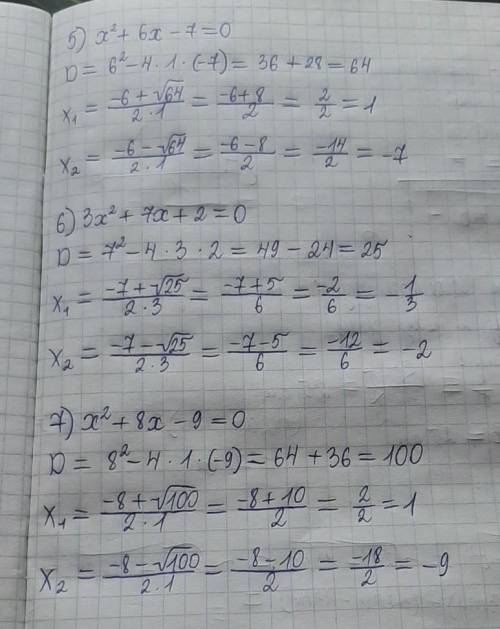 5) x² + 6x - 7 = 0
D = 6² - 4 · 1 · (-7) = 36 + 28 = 64
x₁ = (-6 + √64)/(2 · 1) = (-6 + 8)/2 = 2/2 = 1
x₂ = (-6 - √64)/(2 · 1) = (-6 - 8)/2 = -14/2 = -7
6) 3x² + 7x + 2 = 0
D = 7² - 4 · 3 · 2 = 49 - 24 = 25
x₁ = (-7 + √25)/(2 · 3) = (-7 + 5)/6 = -2/6 = -1/3
x₂ = (-7 - √25)/(2 · 3) = (-7 - 5)/6 = -12/6 = -2
7) x² + 8x - 9 = 0
D = 8² - 4 · 1 · (-9) = 64 + 36 = 100
x₁ = (-8 + √100)/(2 · 1) = (-8 + 10)/2 = 2/2 = 1
x₂ = (-8 - √100)/(2 · 1) = (-8 - 10)/2 = -18/2 = -9